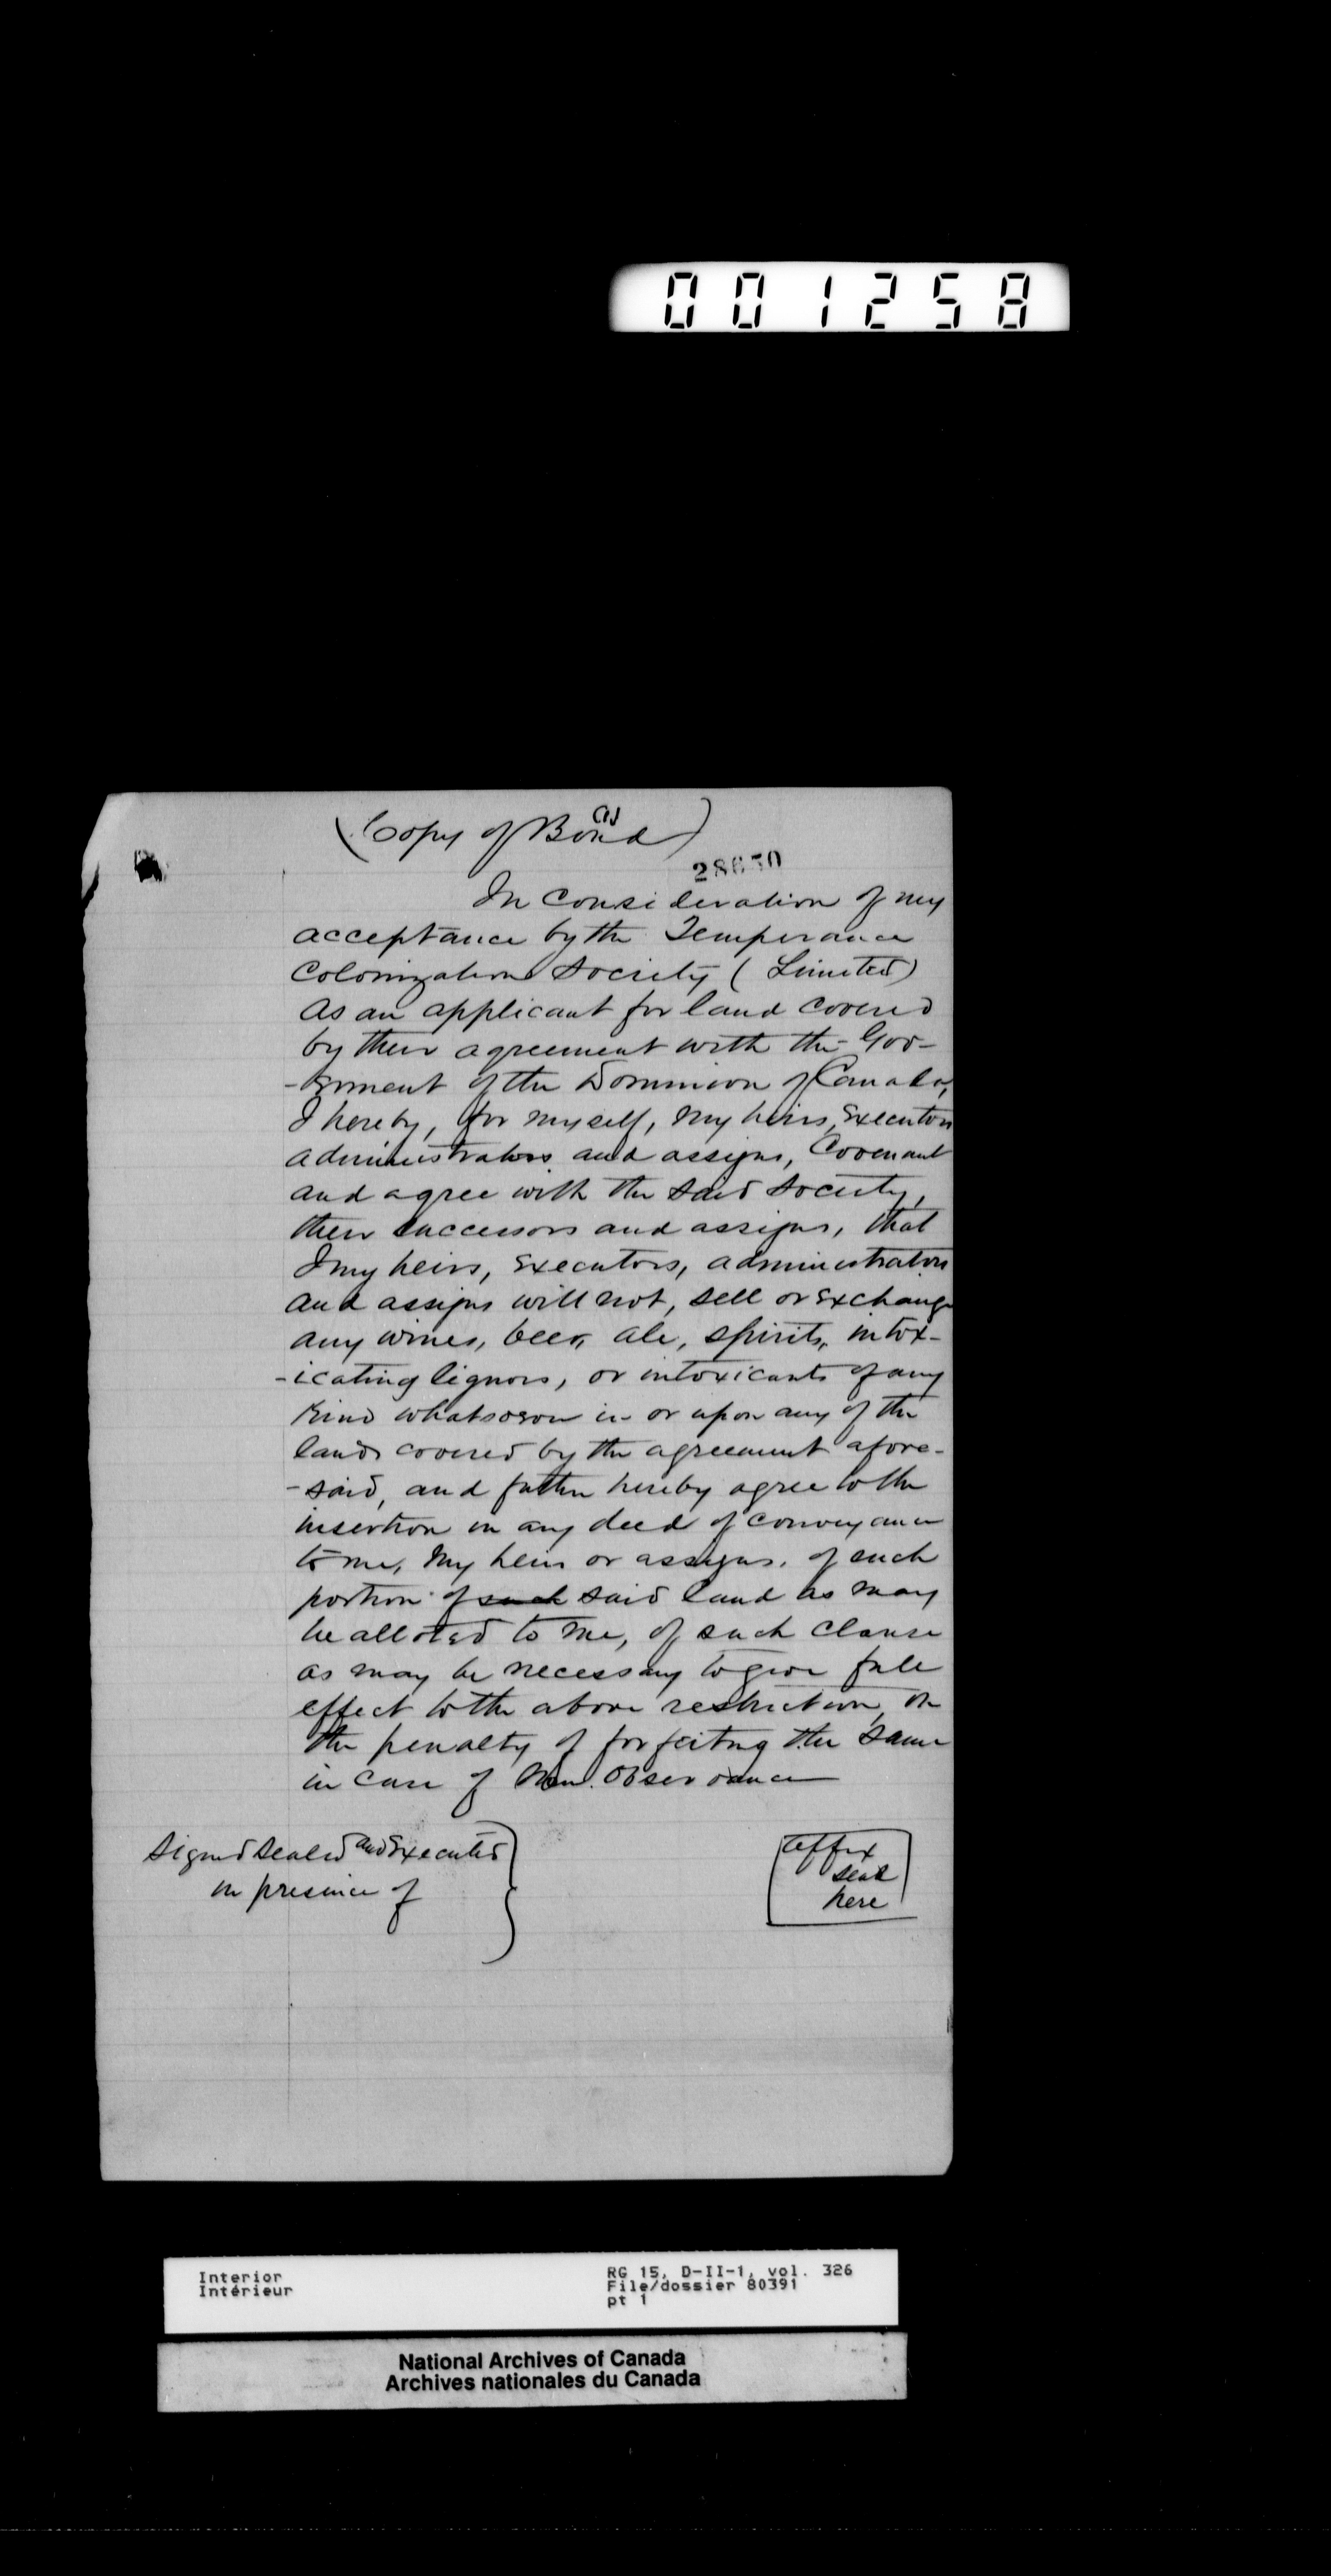 001258
(Copy of Bond)
(1)
28650
In consideration of my
acceptance by the Temperance
Colonization Society (Limited)
as an applicant for land covered
by their agreement with the Gov-
-ernment of the Dominion of Canada,
I hereby, for myself, my heirs, Executors
administrators and assigns, Covenant
and agree with the said Society,
their successors and assigns, that
I my heirs, Executors, administrators
and assigns will not, sell or Exchange
any wines, beer, ale, spirits, intox-
-icating liquors, or intoxicants of any
kind whatsoever in or upon any of the
lands covered by the agreement afore-
-said, and further hereby agree to the
insertion in any deed of conveyance
to me, my heirs or assigns, of such
portion of such said land as may
be alloted to me, of such clause
as may be necessary to give full
effect to the above restriction, on
the penalty of forfeiting the same
in case of Non. Observance
Signed Sealed and Executed
in presence of
affix
seal
here
Interior
Intérieur
RG 15, D-II-1, vol. 326
File/dossier 80391
pt 1
National Archives of Canada
Archives nationales du Canada